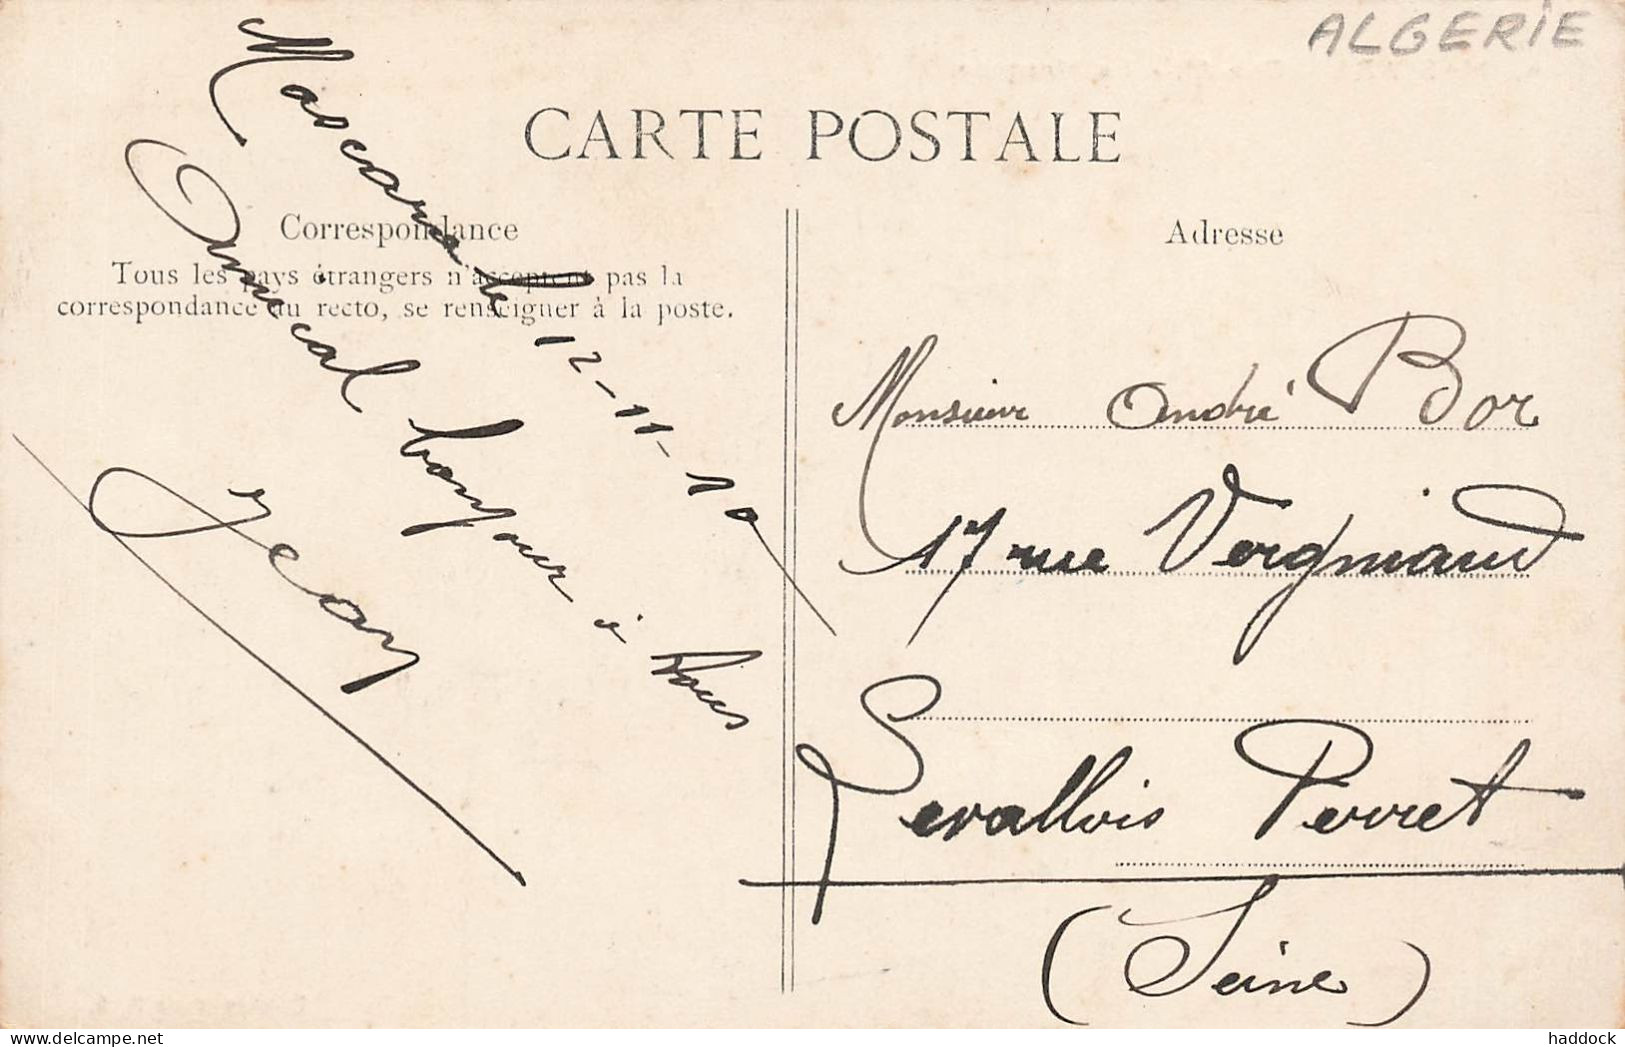 ALGERIE
CARTE POSTALE
Correspondance
Tous les pays étrangers n'acceptent pas la
correspondance au recto, se renseigner à la poste.
Mascara le 12-11-10
Amical bonjour à tous
Jean
Adresse
Monsieur André Bor
17 rue Vergniaud
Levallois Perret
(Seine)
delcampe.net
haddock